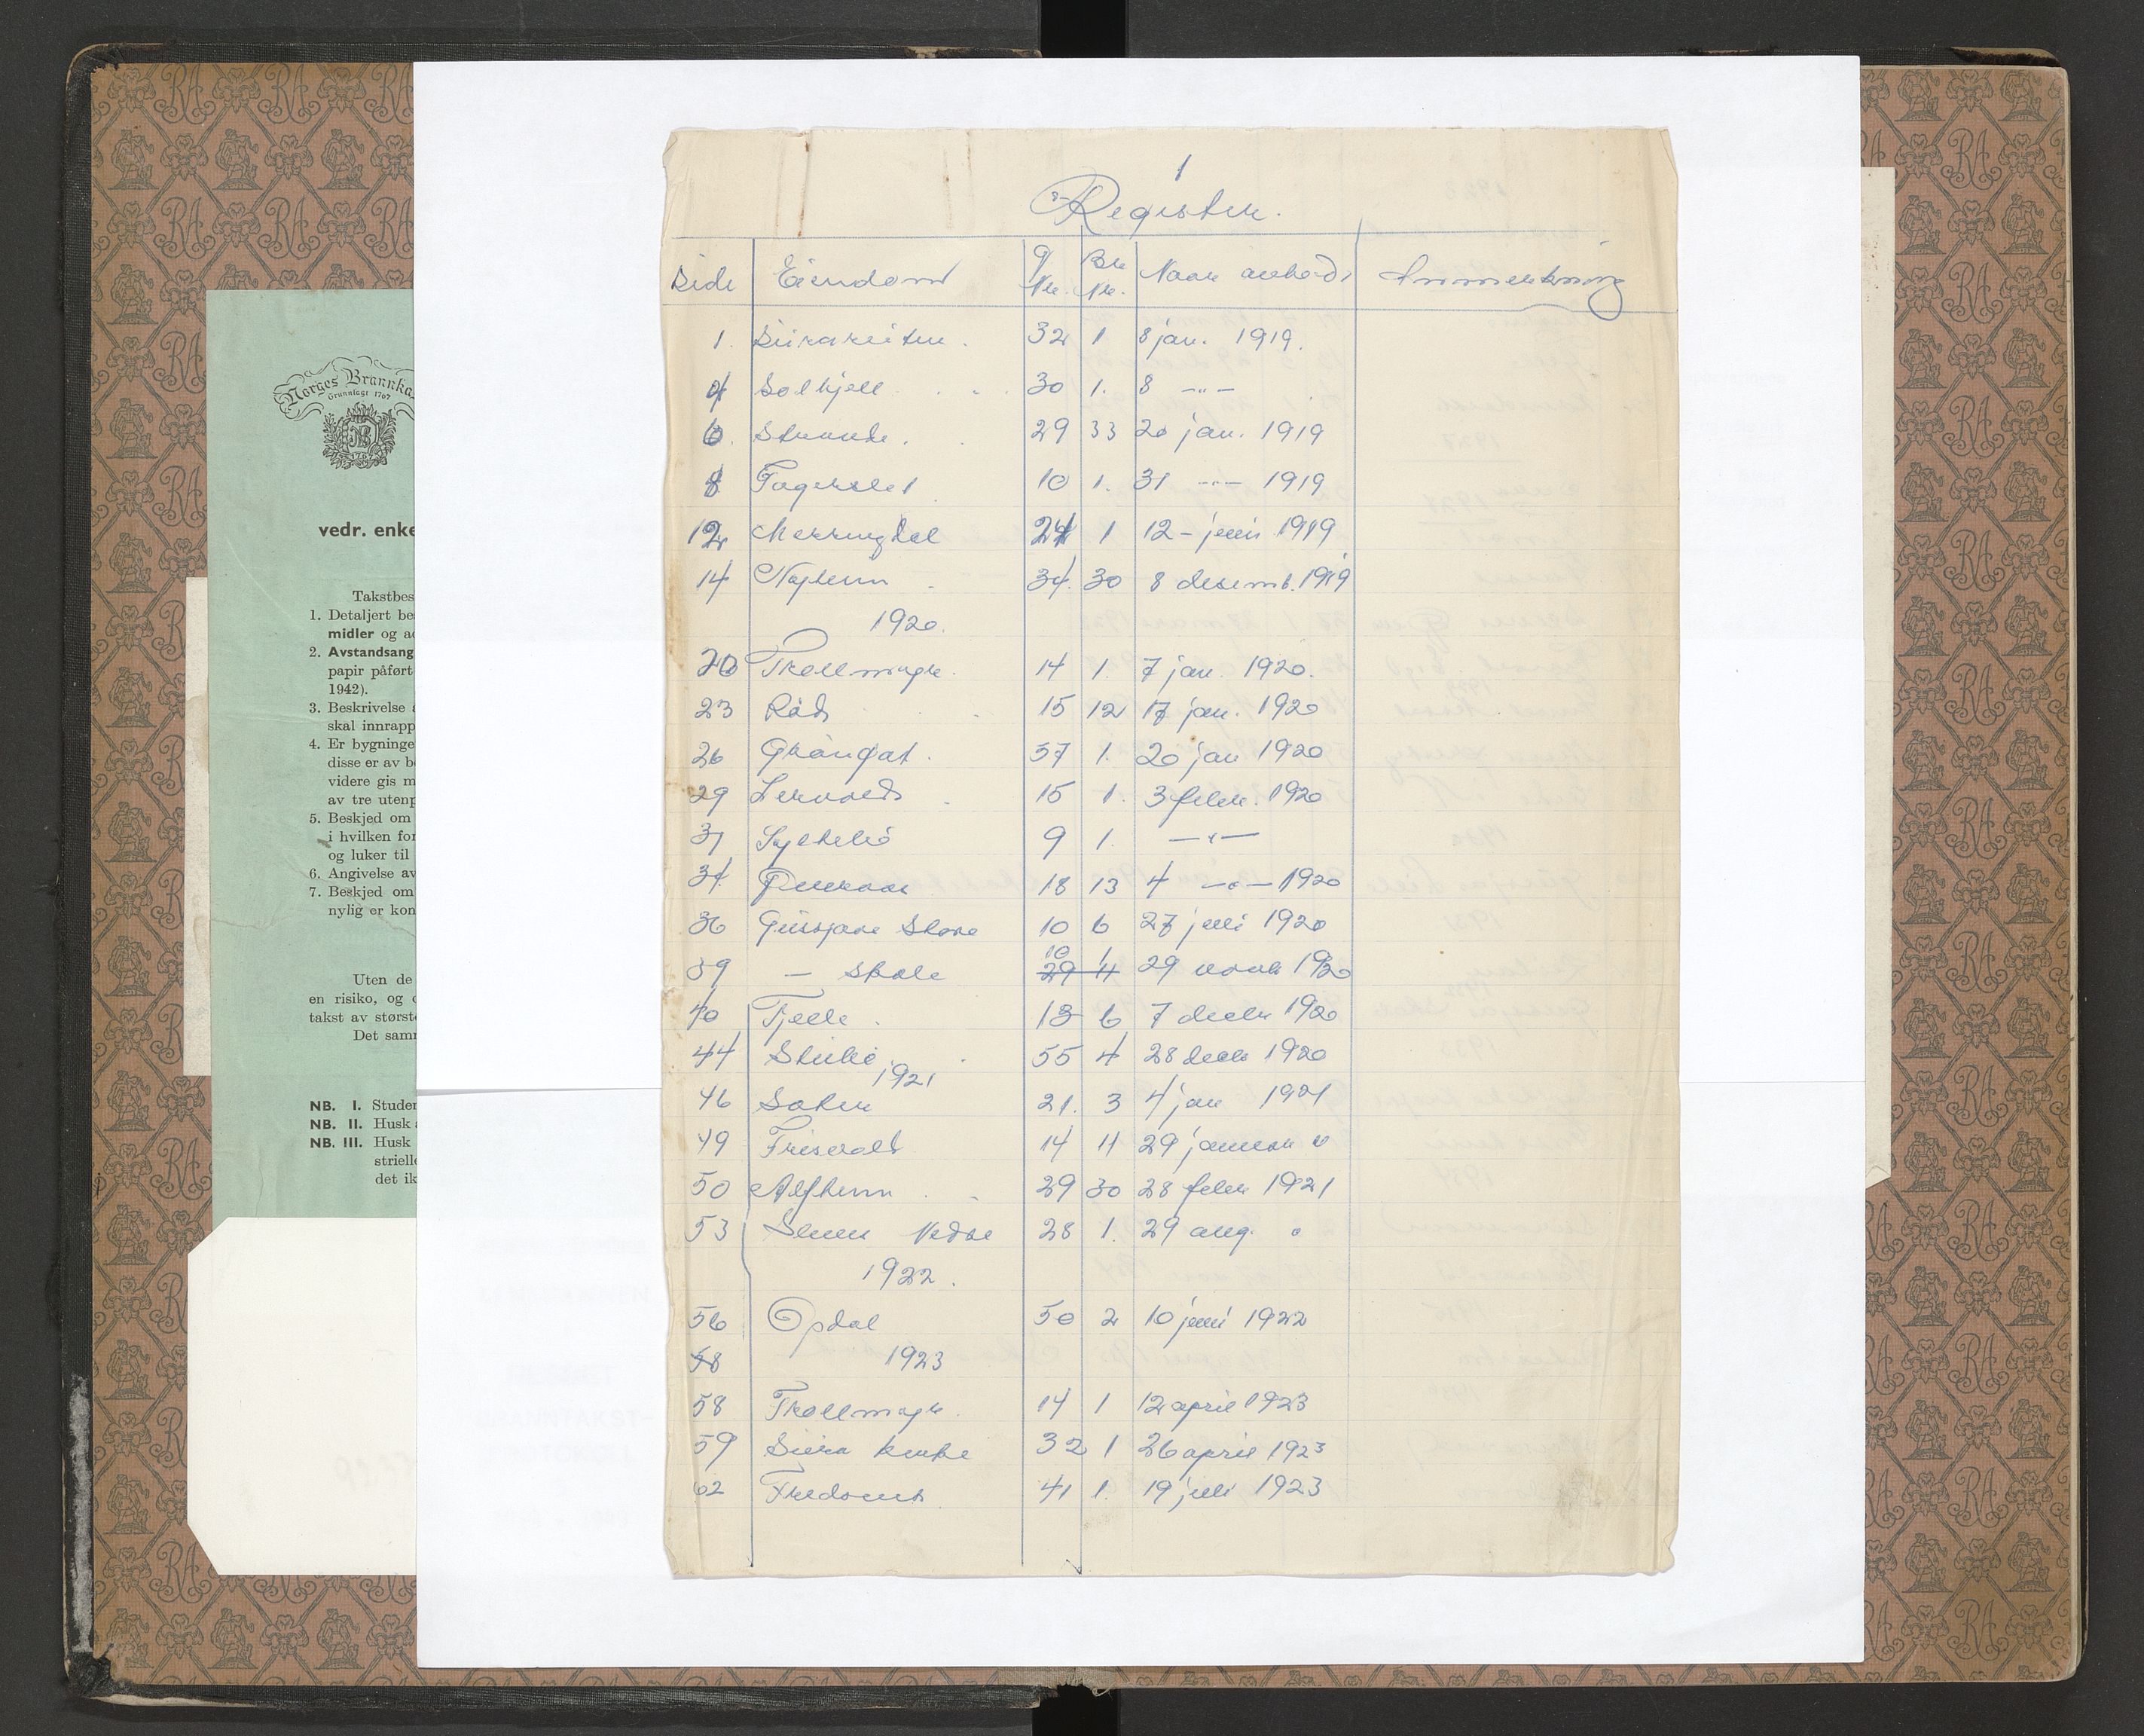 Norges Brannka
Grunnlagt 1767
vedr. enke
Takstbes
1. Detaljert be
midler og a
2. Avstandsang
papir påført
1942).
3. Beskrivelse
skal innrapp
4. Er bygninge
disse er av b
videre gis m
av tre utenp
5. Beskjed om
i hvilken for
og luker til
6. Angivelse av
7. Beskjed om
nylig er kon
Uten de
en risiko, og
takst av størst
Det samm
NB. I. Studer
NB. II. Husk
NB. III. Husk
strielle
det ik
1
Register.
Side Eiendom G Nr. Br Nr. Naar avholdt Anmerkning
1. 32 1 8 jan. 1919.
4 Solhjell 30 1. 8 -"-
6. Strande. 29 33 20 jan. 1919
8 Fagerslet 10 1. 31 -"- 1919
12 Merringdal 24 1 12 - juni 1919
14 34. 30 8 desemb. 1919
1920.
20 Trollmyr. 14 1. 7 jan. 1920.
23 Röd 15 12 17 jan. 1920
26 37 1. 20 jan 1920
29 Lervold 15 1. 3 febr. 1920
31 9 1. -"-
34. 18 13 4 -"- 1920
36 Gussjare Skore 10 6 27 juli 1920
39 - Skole 10 1 29 11 29 novb 1920
40 Tjelle. 13 6 7 decbr 1920
44 55 4 28 decb 1920
1921
46 Soter 21. 3 4 jan 1921
49 Frisvold 14 11 29 januar "
50 Alfheim 29 30 28 febr 1921
53 Nedre 28 1. 29 aug. "
1922.
56 Opdal 50 2 10 juni 1922
58 1923
58 Trollmyr. 14 1 12 april 1923
59 Siira 32 1 26 april 1923
62 41 1. 19 juli 1923